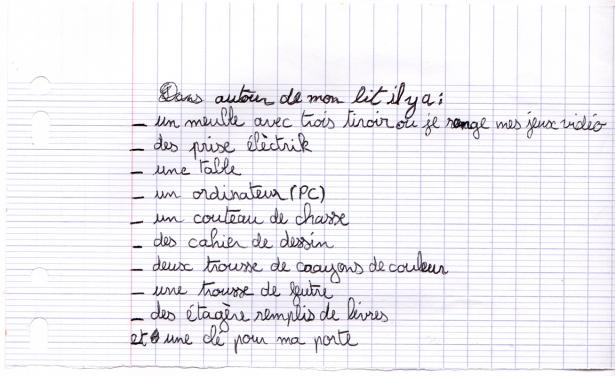 Dans autour de mon lit il y a :
_ un meuble avec trois tiroir ou je range mes jeux vidéo
_ des prise élèctrik
_ une table
_ un ordinateur (PC)
_ un couteau de chasse
_ des cahier de dessin
_ deux trousse de crayons de couleur
_ une trousse de feutre
_ des étagère remplis de livres
et une clé pour ma porte